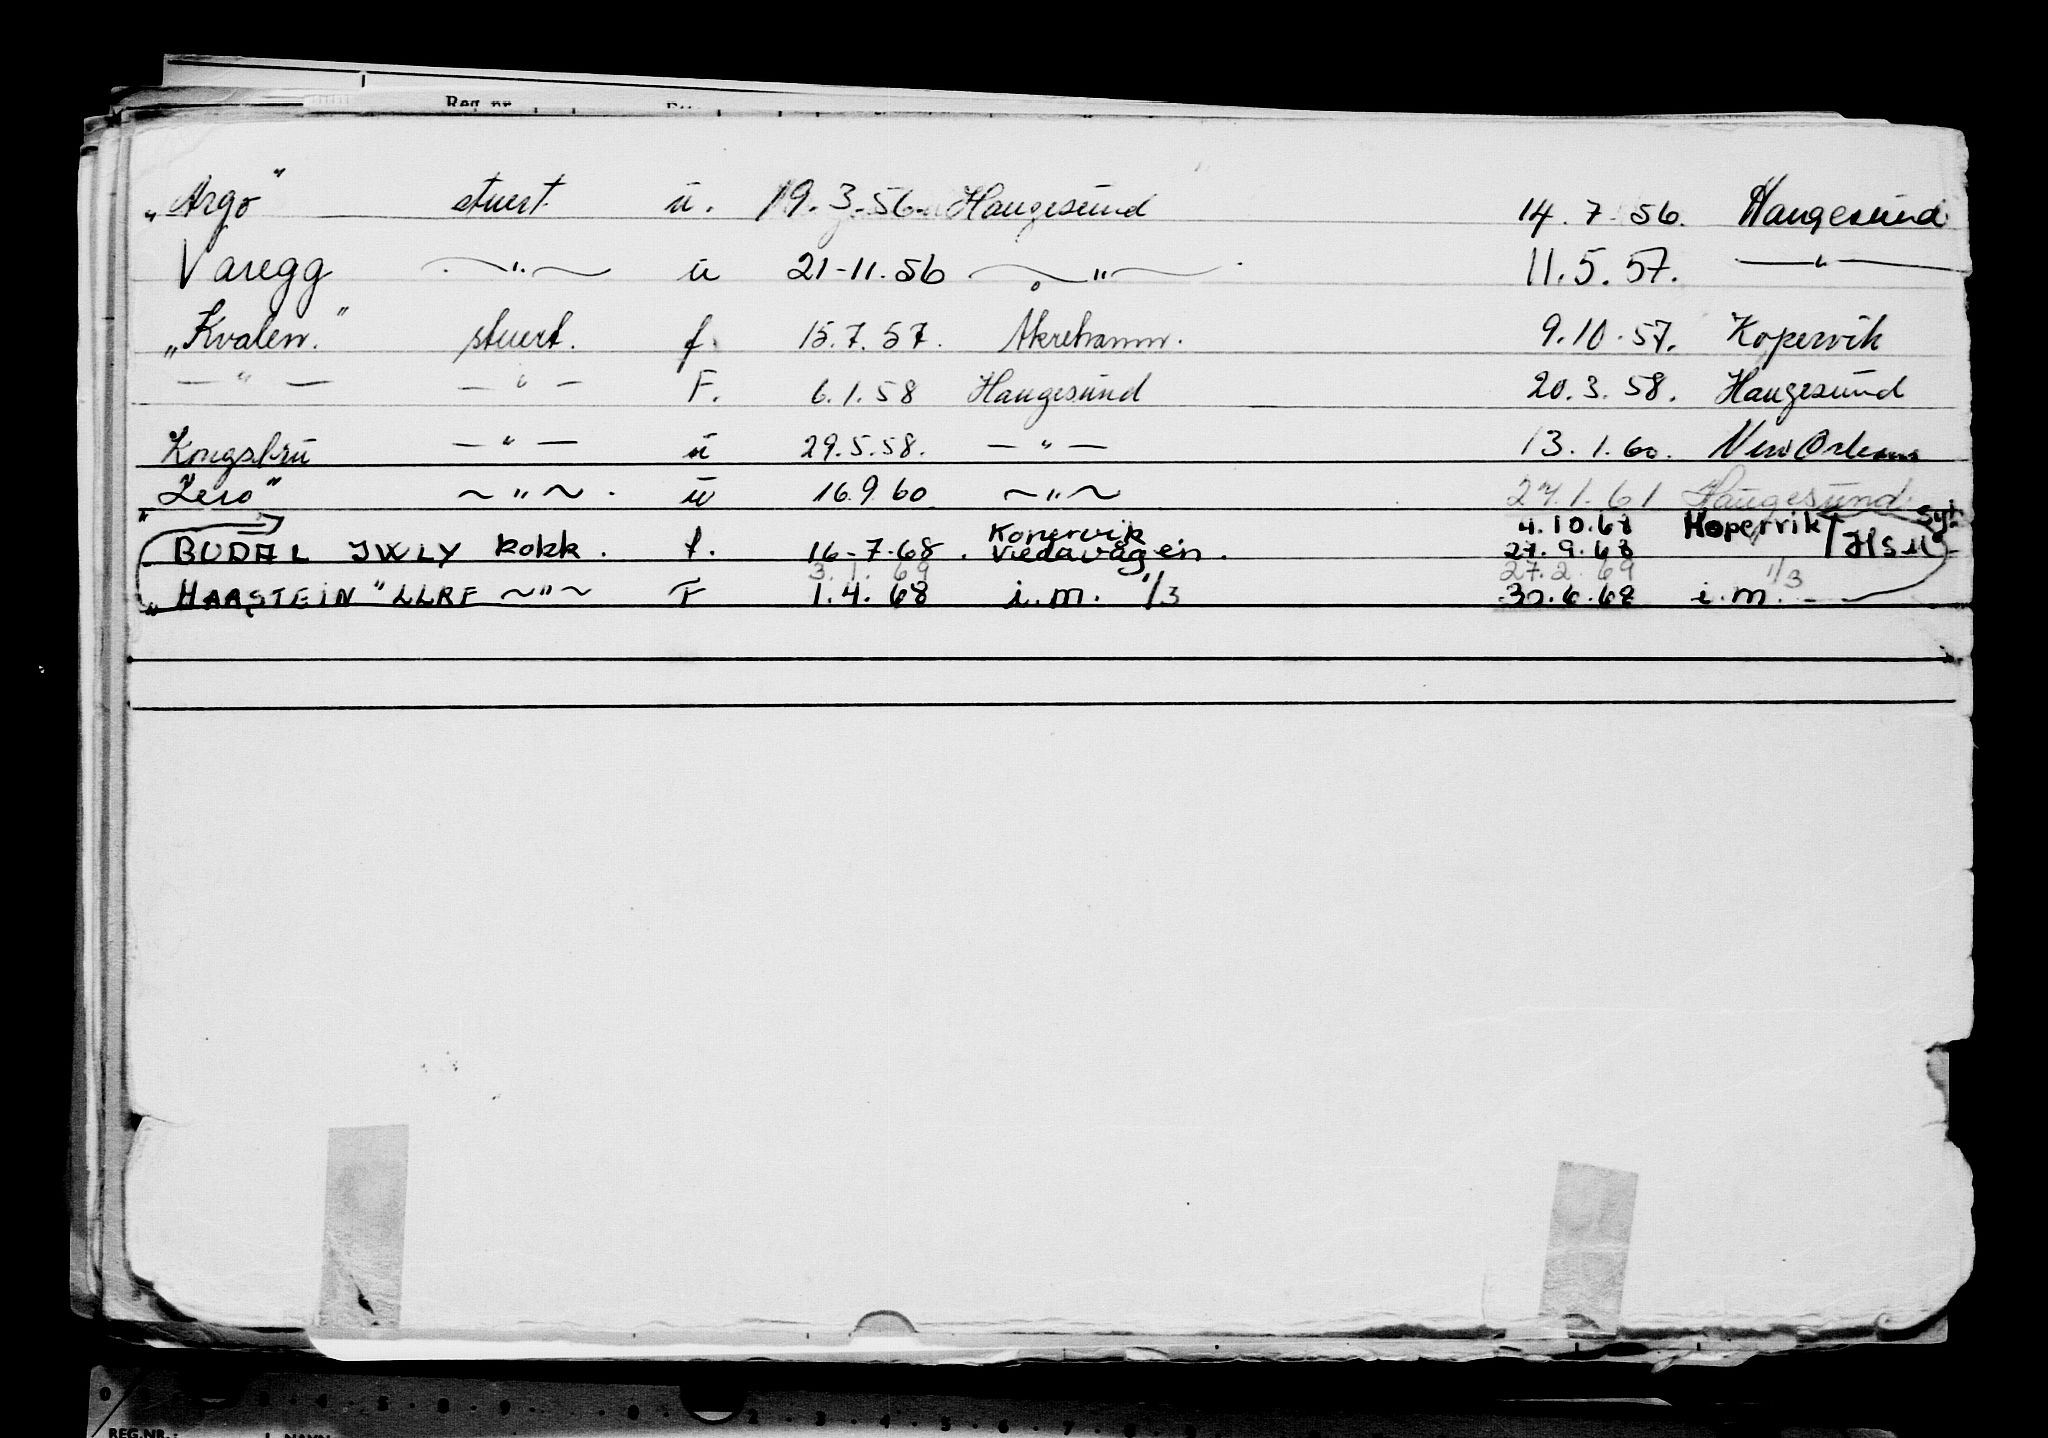 Reg. nr.
„Argo" stuert. u. 19.3.56. Haugesund 14.7.56. Haugesund
Varegg —"— u 21-11.56 —"— 11.5.57. —"—
„Kvalen." stuert. f. 15.7.57. Åkrehamn. 9.10.57. Kopervik
—"— —"— F. 6.1.58 Haugesund 20.3.58. Haugesund
Kongsbru —"— u 29.5.58. —"— 13.1.60. New Orleans
„Zero" ~"~. u 16.9.60 ~"~ 27.1.61 Haugesund.
Kopervik 4.10.68 Kopervik syk
BUDAL JWLY kokk. f. 16-7-68. Vedavågen. 27.9.68 HSM
3.1.69 27.2.69 1/3
„HAASTEIN" LLRF ~"~ F 1.4.68 i.m. 1/3 30.6.68 i.m.
REG.NR.: 1. NAVN